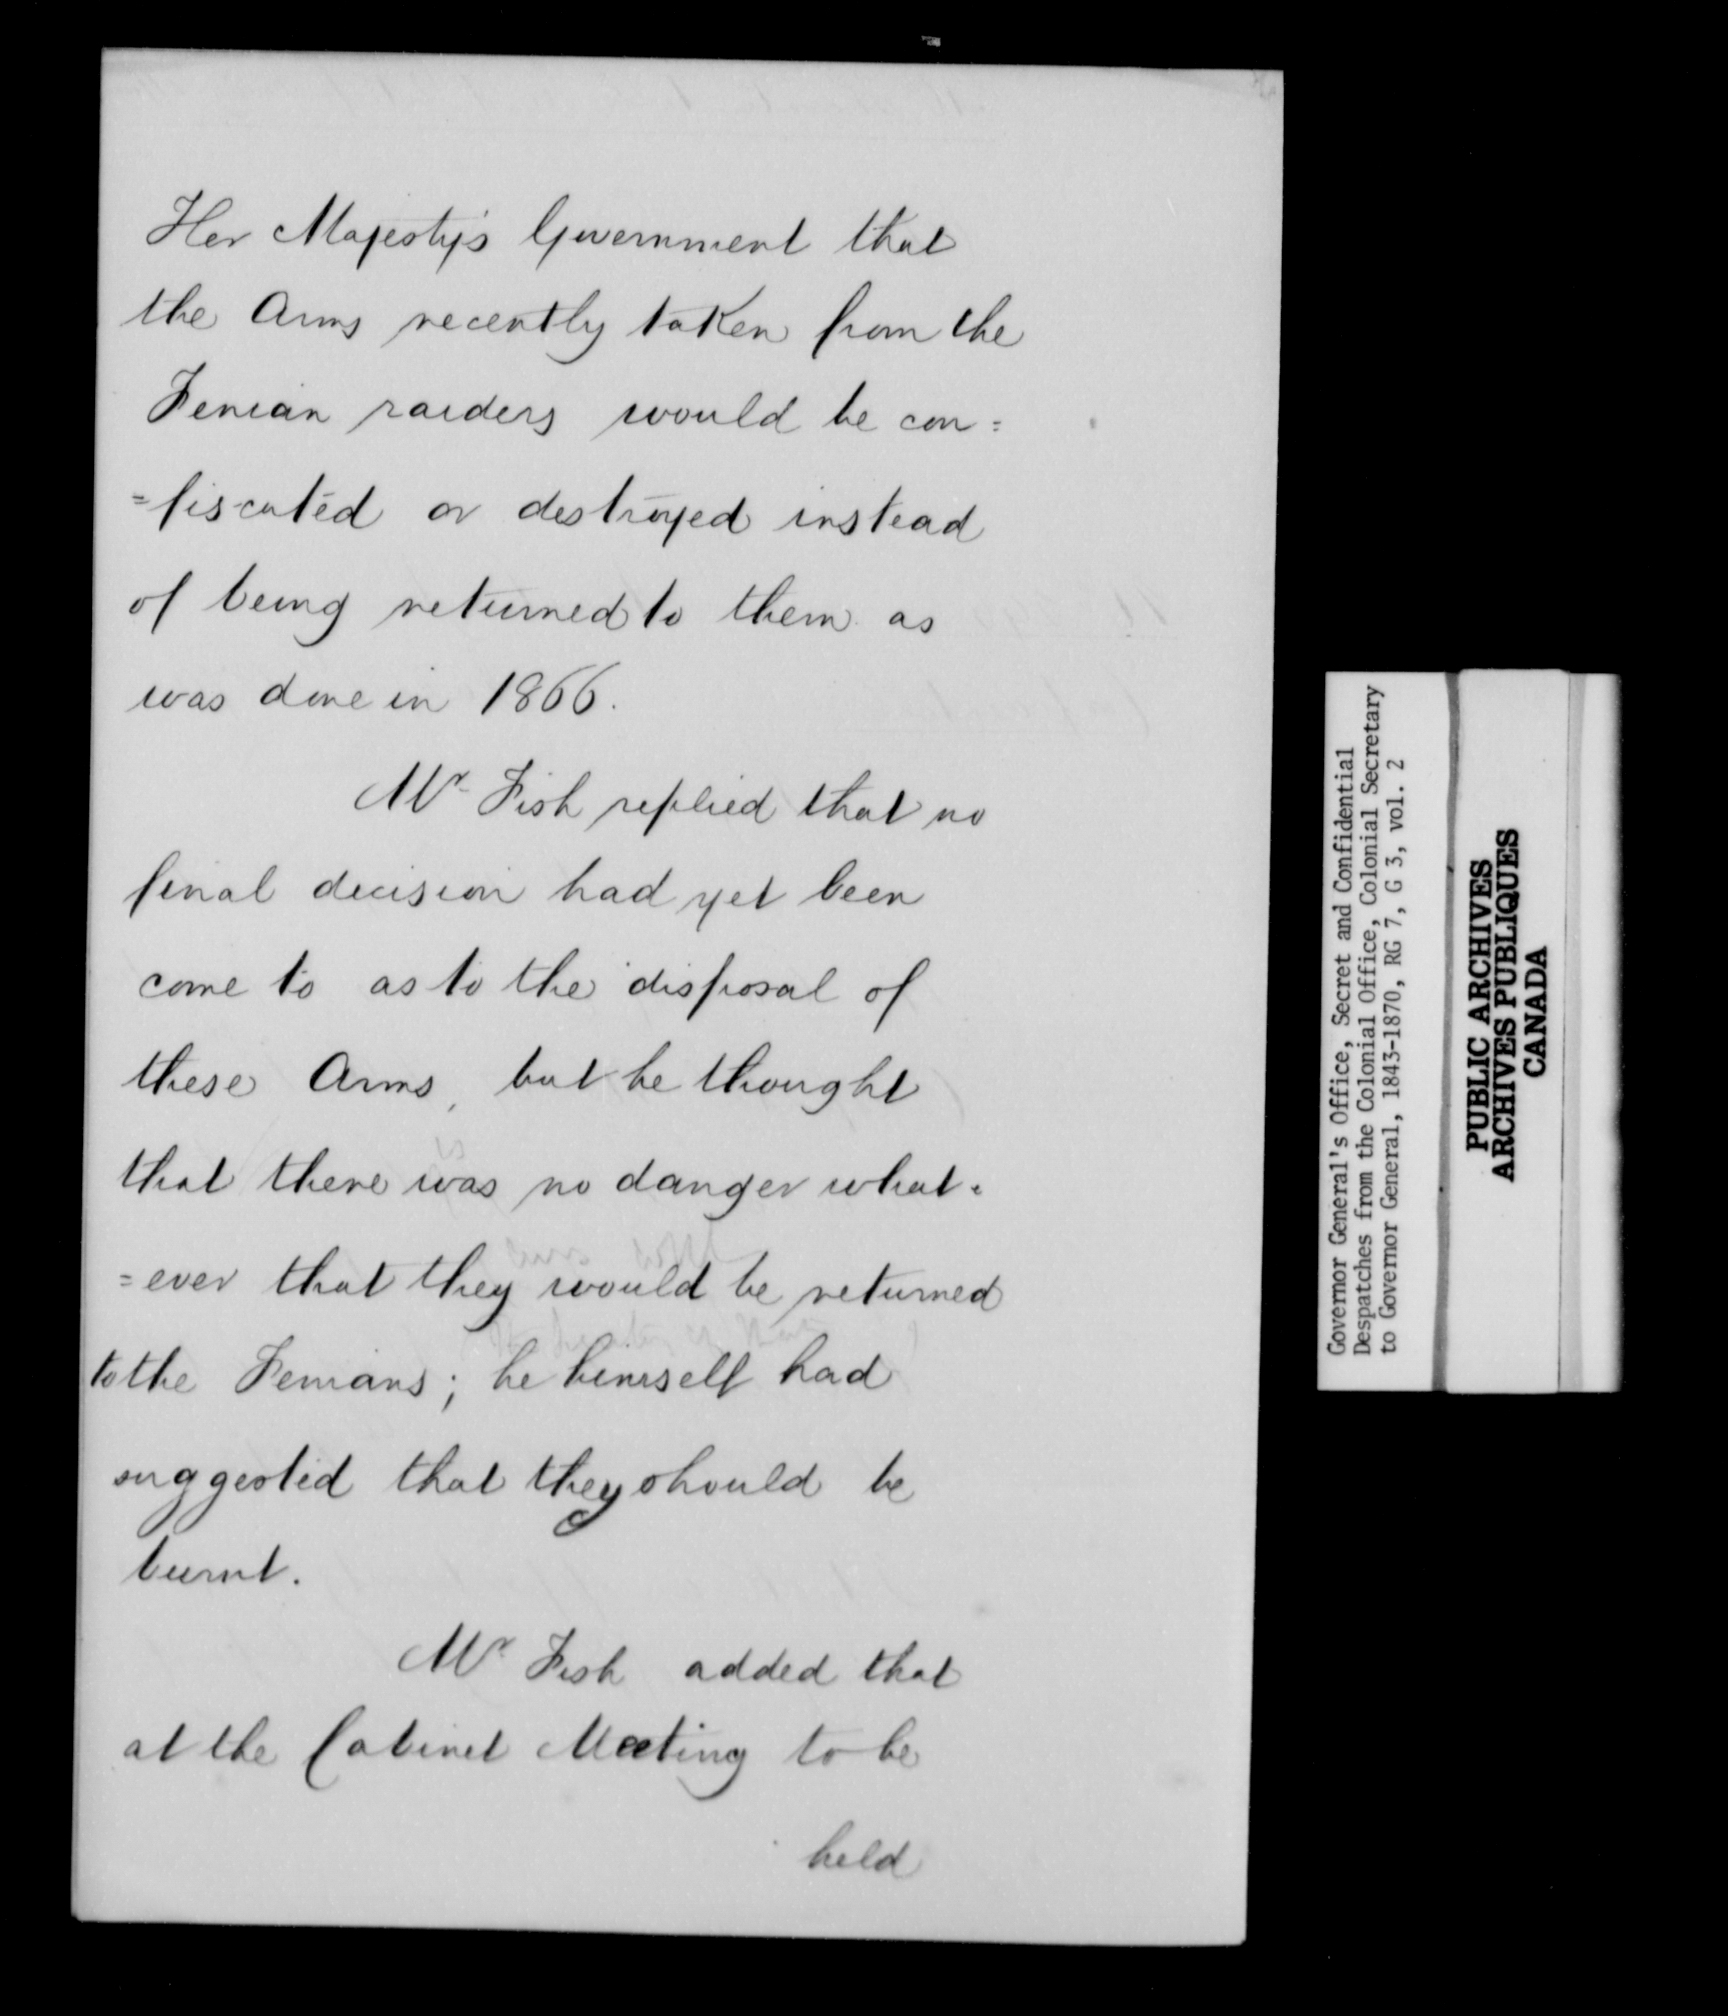 Her Majesty's Government that
the Arms recently taken from the
Fenian raiders would be con=
=fiscated or destroyed instead
of being returned to them as
was done in 1866.
Mr. Fish replied that no
final decision had yet been
come to as to the disposal of
these Arms, but he thought
that there was no danger what=
=ever that they would be returned
to the Fenians; he himself had
suggested that they should be
burnt.
Mr. Fish added that
at the Cabinet Meeting to be
held
Governor General's Office, Secret and Confidential
Despatches from the Colonial Office, Colonial Secretary
to Governor General, 1843-1870, RG 7, G 3, vol. 2
PUBLIC ARCHIVES
ARCHIVES PUBLIQUES
CANADA